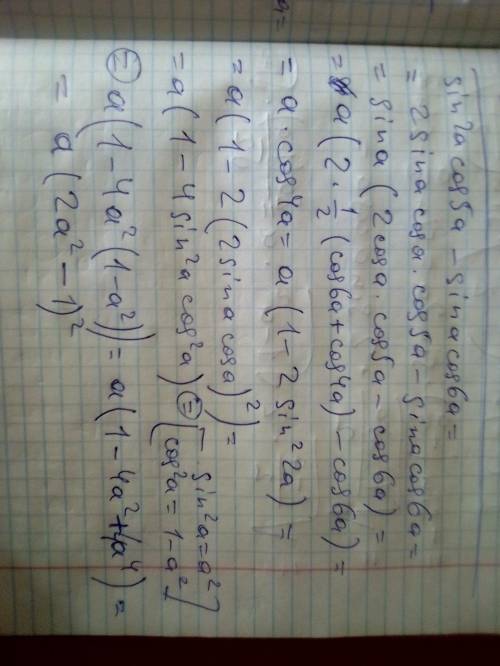 sin2a cos5a - sina cos6a =
= 2sina cosa · cos5a - sina cos6a =
= sina (2cosa · cos5a - cos6a) =
= a (2 · 1/2 (cos6a + cos4a) - cos6a) =
= a · cos4a = a (1 - 2 sin²2a) =
= a (1 - 2 (2sina cosa)²) =
= a (1 - 4 sin²a cos²a) = [sin²a = a²
cos²a = 1 - a²]
= a (1 - 4a² (1 - a²)) = a (1 - 4a² + 4a⁴) =
= a (2a² - 1)²